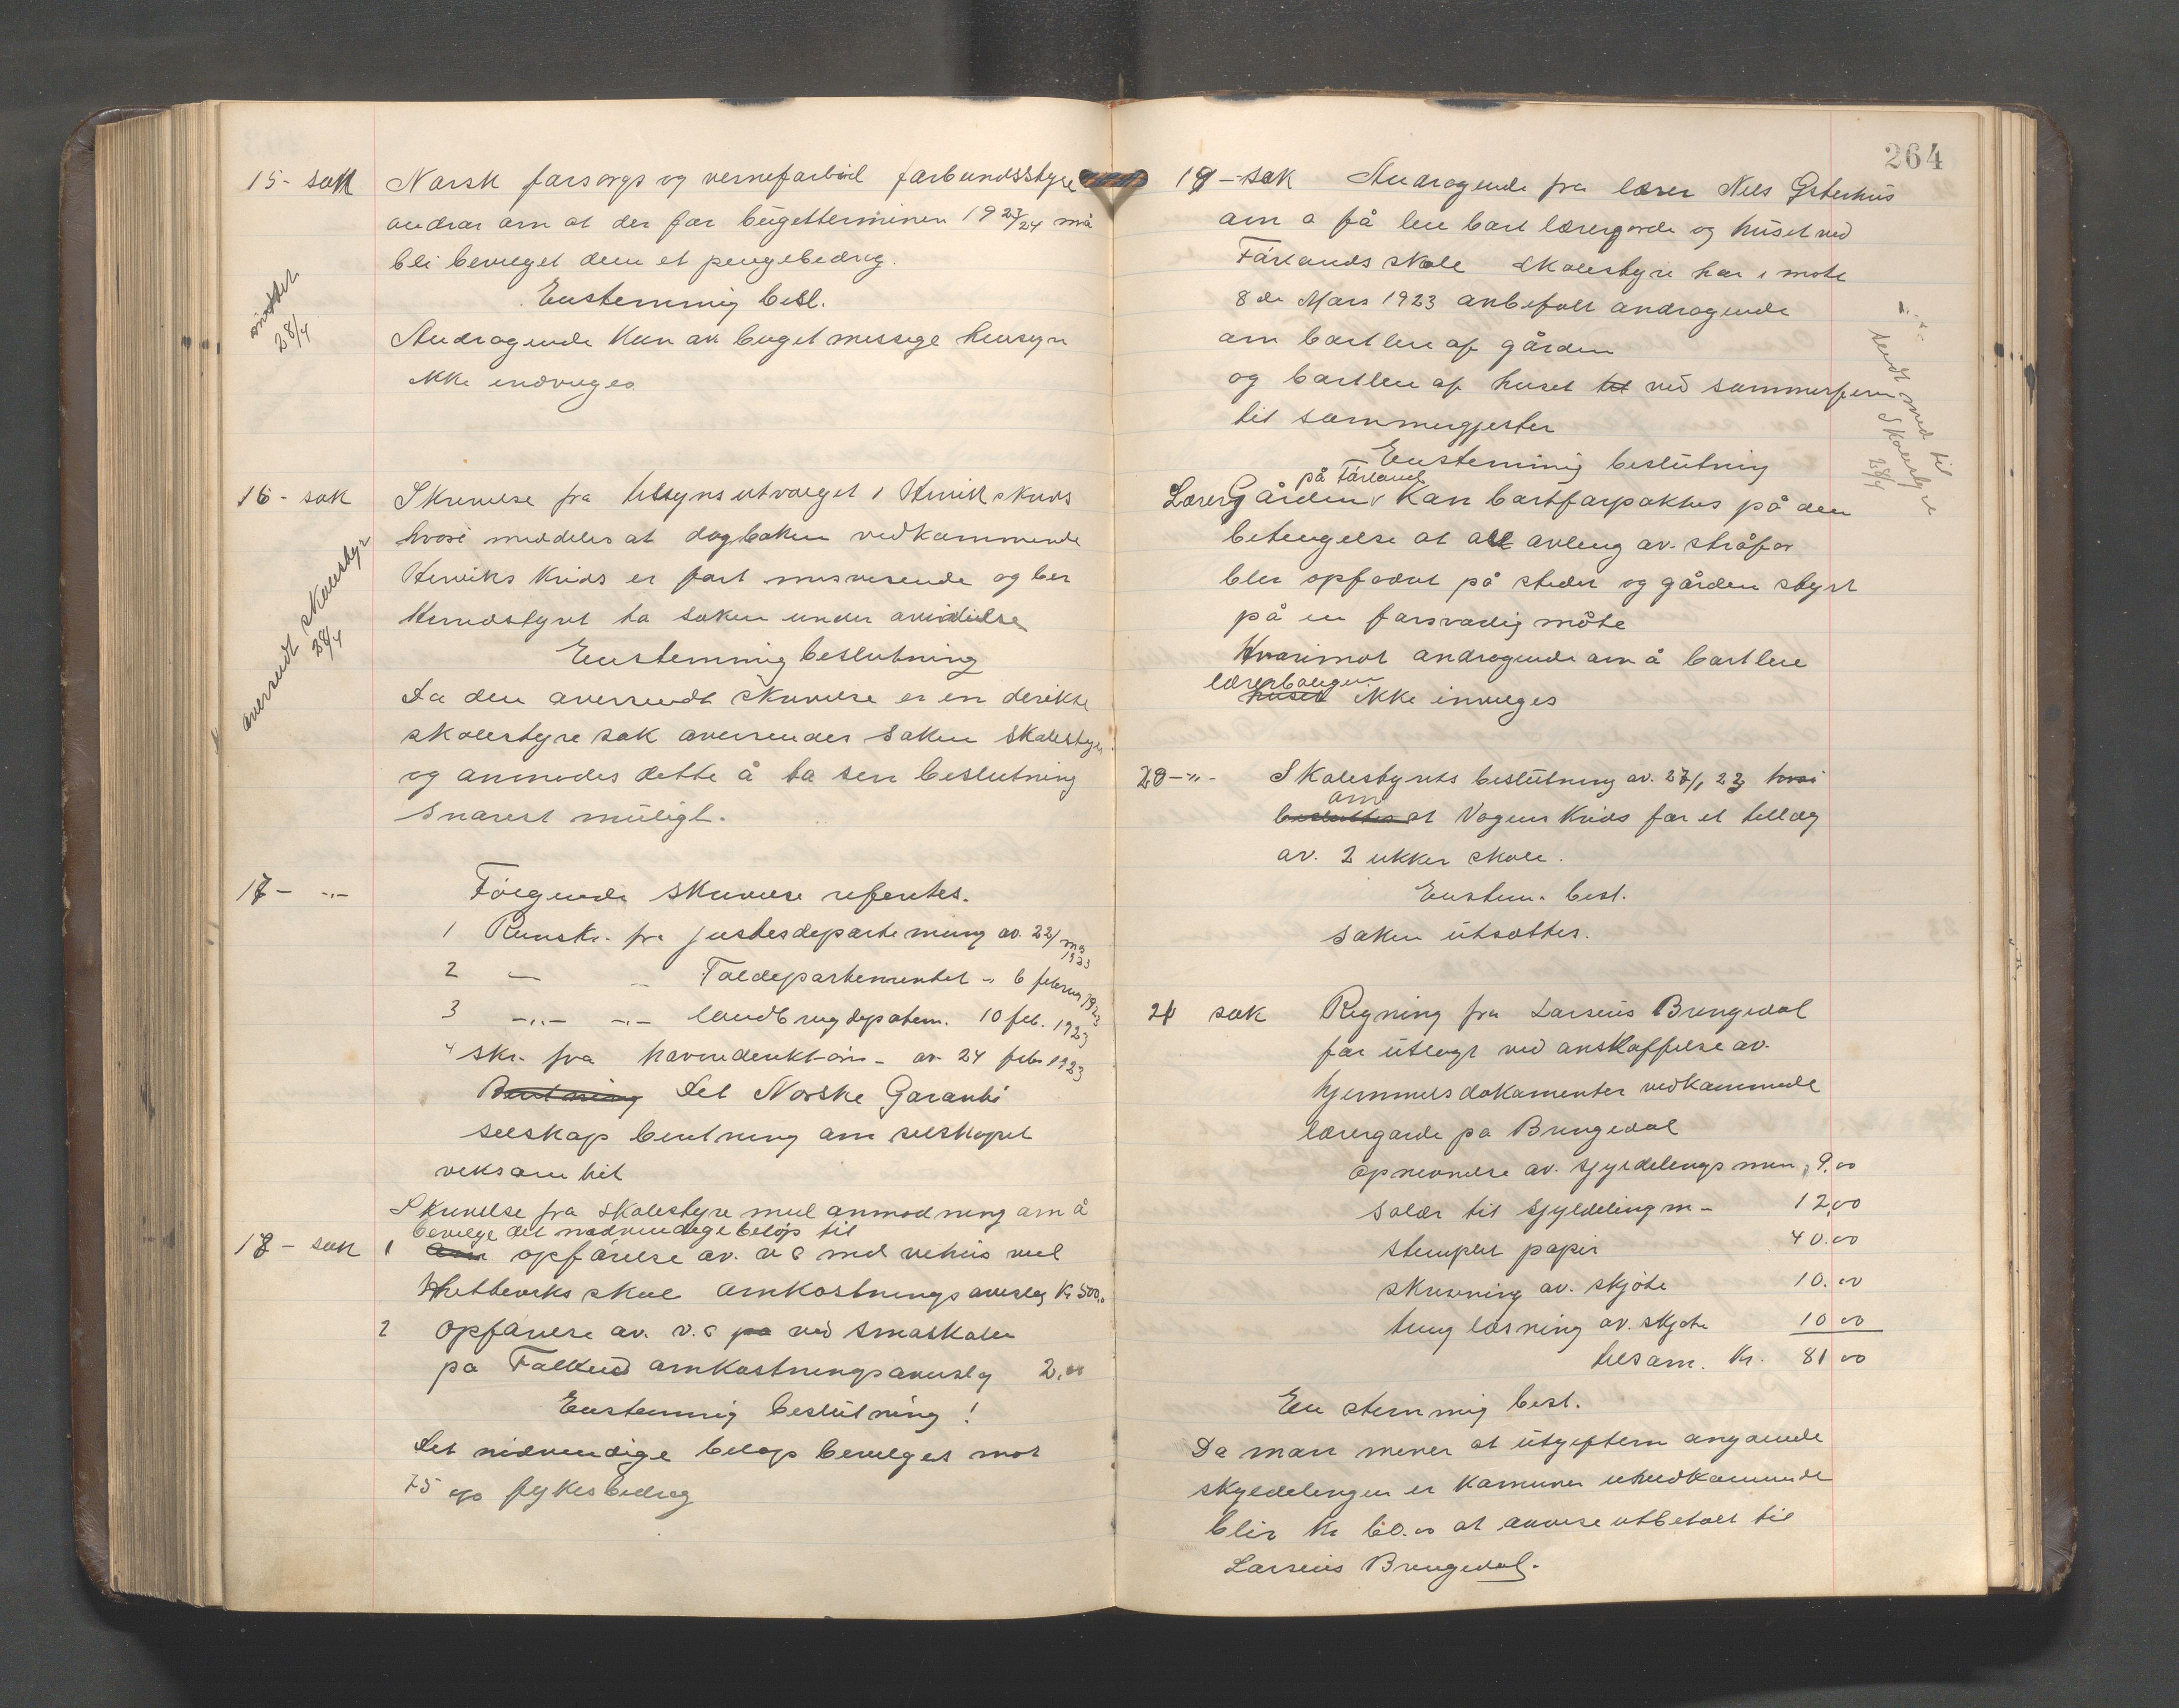 15 - sak Norsk forsorgs og vernefarbund farbundsstyre
andrar om at der for bügetterminen 1923/24 må
bli bevilget dem et pengebedrag.
Enstemmig besl.
28/4
Andragende kan av buget messege hensyn
ikke indvilges
16 - sak Skrivelse fra tilsyns utvalget i krids
hvori meddeles at dagboken vedkommende
krids er fort misvisende og ber
herredstyret ta saken under
Enstemmig beslutning
oversendt skolestyr
28/4
Da den oversendte skrivelse er en direkte
skolestyre sak oversendes saken skolestyre
og anmodes dette å ta sin beslutning
snarest müligt.
17 - -"- Følgende skrivelse refertes.
1 Runskr. fra justesdepartemang av. 22/ ma 1923
2 — — Toldepartementet -" 6 februar 1923
3 -"- -"- landbrugdepatem. 10 feb. 1923
4 skr. fra av 24 febr 1923
Det Norske Garanti
selskap beretning om selskapet
veksomhet
Skrivelse fra skolestyre med anmodning om å
bevilge det nødvendige beløp til
18 - sak 1 opførelse av. v c med vehüs ved
skole omkostnings overslag Kr 500,"
2 opførelse av. v. c pa ved småskolen
pa omkostningsoverslag 2,00
Enstemmig beslütning !
Det nødvendige beløp bevilges mot
75 o/o fylkesbedrag
264
19 - sak Andragende fra lærer Nils Østerhüs
om a få leie bort lærergarde og hüset ved
Førlands skole Skolestyre har i mote
8 de Mars 1923 anbefalt andragende
om bortleie af gården
og bortleie af huset til ved sommerferien
til sommergjester
sendt med til
Skolestyre
28/4
Enstemmig beslütning
på Førland
Lærer Gården kan bortforpaktes på den
betengelse at all avleng av. stråfor
blir opfodret på stedet og gården styrt
på en forsvarlig måte
Hvorimot andragende om å bortleie
lærerboligen
huset ikke invilges
20 - -"- Skolestyrets beslütning av. 27/1 23 hvori
om
beslutter at Vågens krids får et tillæg
av. 2 ukker skole.
Enstem. besl.
saken ütsættes.
21 sak Rigning fra Larseüs Bringedal
for ütlagt ved anskaffelse av.
hjemmelsdokumenter vedkommende
lærergarde pa Bringedal
opnevnelse av. sjyldelings men, 9.00
salær til sjyldeling m- 12,00
stemplet papir 40.00
skrivning av. skjøte 10.00
ting læsning av. skjøte 10 00
tilsam. Kr. 81 00
En stemmig besl.
Da man mener at ütgiftern angaende
skyldelingen er komunen uvedkommende
blir kr 60.00 at anvise utbetalt til
Larseüs Bringedal.